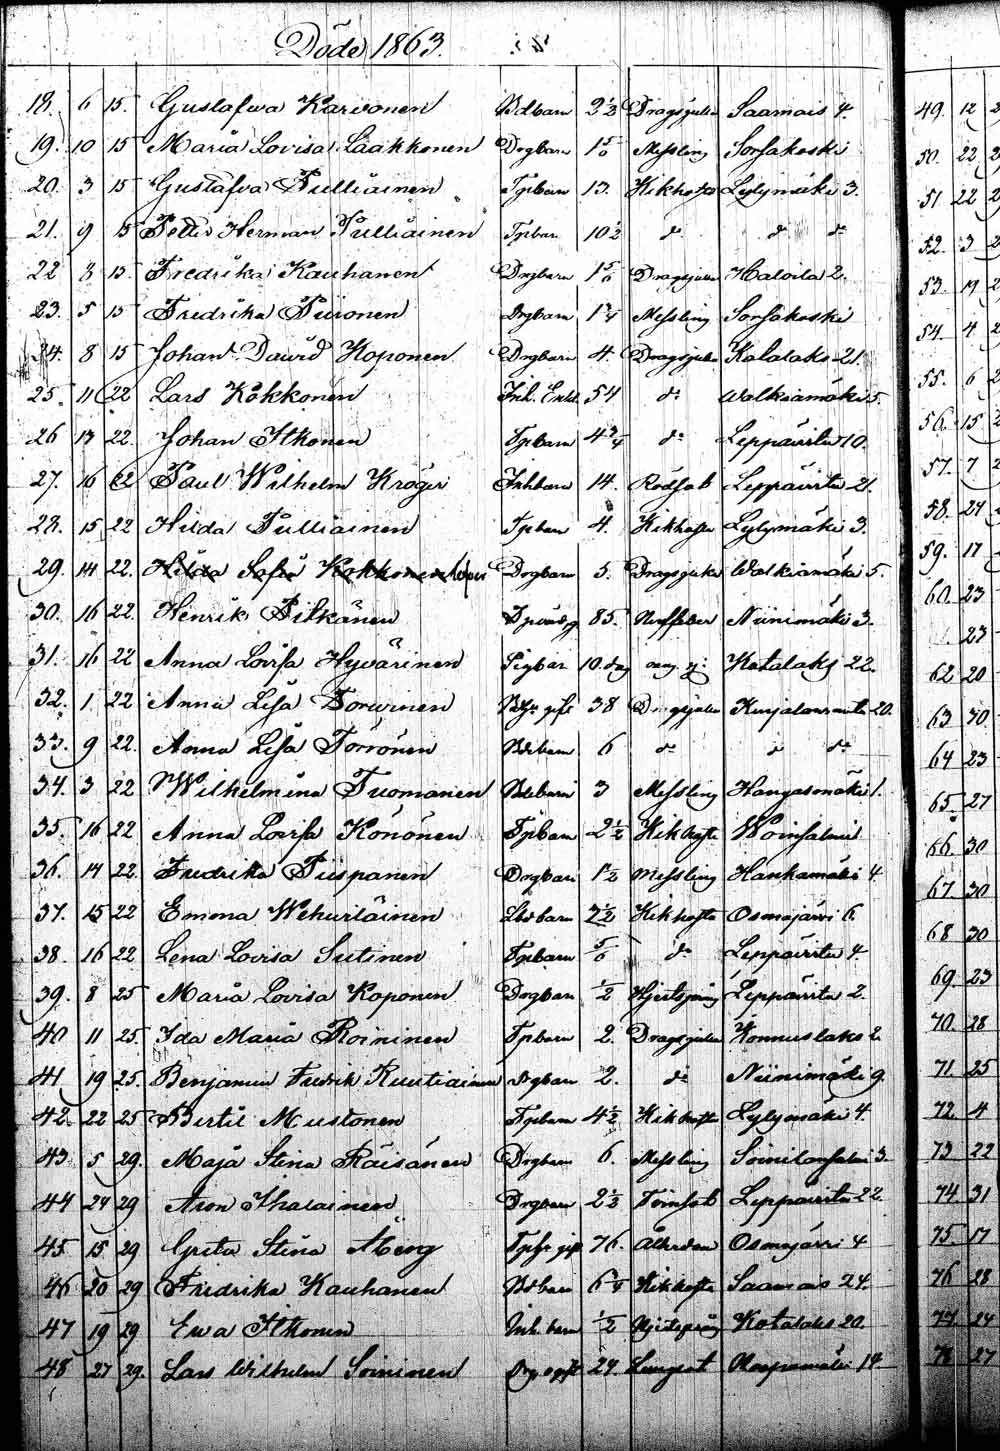 Döde 1863.
18. 6 15. Gustafwa Karvonen Bdbarn 2½ Dragsjukn Saamais 4.
19. 10 15 Maria Lovisa Lääkkonen Drgbarn Messling Sorsakoski
20. 3 15 Gustafva Pulliainen Tpbarn 13. Kikhosta Lylymäki 3.
21. 9 15 Petter Herman Pulliainen Tpbarn 10½ do do do
22 8 15. Fredrika Kauhanen Drgbarn Dragsjukn Kaloila 2.
23. 5 15 Fredrika Piironen Drgbarn 1¼ Messling Sorsakoski
24. 8 15 Johan David Koponen Drgbarn 4. Dragsjukn Kotalaks 21.
25. 11 22 Lars Kokkonen Inh. Enkl. 54 do Walkiamäki 5.
26 13 22. Johan Itkonen Tpbarn 4¾ do Leppävirta 10.
27. 16 22 Paul Wilhelm Kröger Inhbarn 14. Rödsot Leppävirta 21.
28. 15 22 Hilda Pulliainen Tpbarn 4. Kikhosta Lylymäki 3.
29. 14 22. Hilda Sofia Kokkonen Drgbarn 5. Dragsjuka Walkiamäki 5.
30. 16 22. Henrik Pitkänen 85. Niinimäki 3.
31. 16 22 Anna Lovisa Hyvärinen Pigbar 10. dag Kotalaks 22.
32. 1 22 Anna Lisa 38 Dragsjukn Kurjalanranta 20.
33. 9 22. Anna Lisa Torrönen Bdbarn 6 do do do
34. 3 22 Wilhelmina Tuomanen Bdebarn 3 Messling Kangasmäki 1.
35. 16 22 Anna Lovisa Könönen Tpbarn 2½ Kikhosta Woinsalmi
36. 14 22. Fredrika Piispanen Drgbarn 1½ Messling Hankamäki 4
37. 15 22 Emma Wehviläinen barn ½ Kikhosta Osmajärvi 6.
38. 16 22 Lena Lovisa Sutinen Tpbarn do Leppävirta 4
39. 8 25 Maria Lovisa Koponen Drgbarn ½ Leppävirta 2.
40 11 25. Ida Maria Roininen Tpbarn 2. Dragsjukn Konnuslaks 2.
41 19 25. Benjamin Fredrik Ruutiainen Drgbarn 2. do Niinimäki 9.
42. 22 25 Bertil Mustonen Tpbarn 4½ Kikhosta Lylymäki 4.
43 5 29. Maja Stina Räisänen Drgbarn 6. Messling Soinilansalmi 3.
44 24 29 Aron Ihalainen Drgbarn 2½ Leppävirta 22.
45. 15 29 Greta Stina Åberg 76. Ålderdom Osmajärvi 4
46 20 29 Fredrika Kauhanen Bdbarn Kikhosta Saamais 24.
47 19 29 Ewa Itkonen Inh. barn ½ Kotalaks 20.
48 27 29. Lars Wilhelm Soininen 24. Lungsot 14
49. 12
50. 22
51. 22
52. 3
53. 19
54. 4
55. 6
56. 15
57. 7
58. 24
59. 17
60. 23
23
62 20
63 30
64 23
65. 27
66. 30
67. 30
68 30
69. 23
70. 28
71. 25
72. 4
73 22
74 31
75. 17
76 28
77. 24
78 27